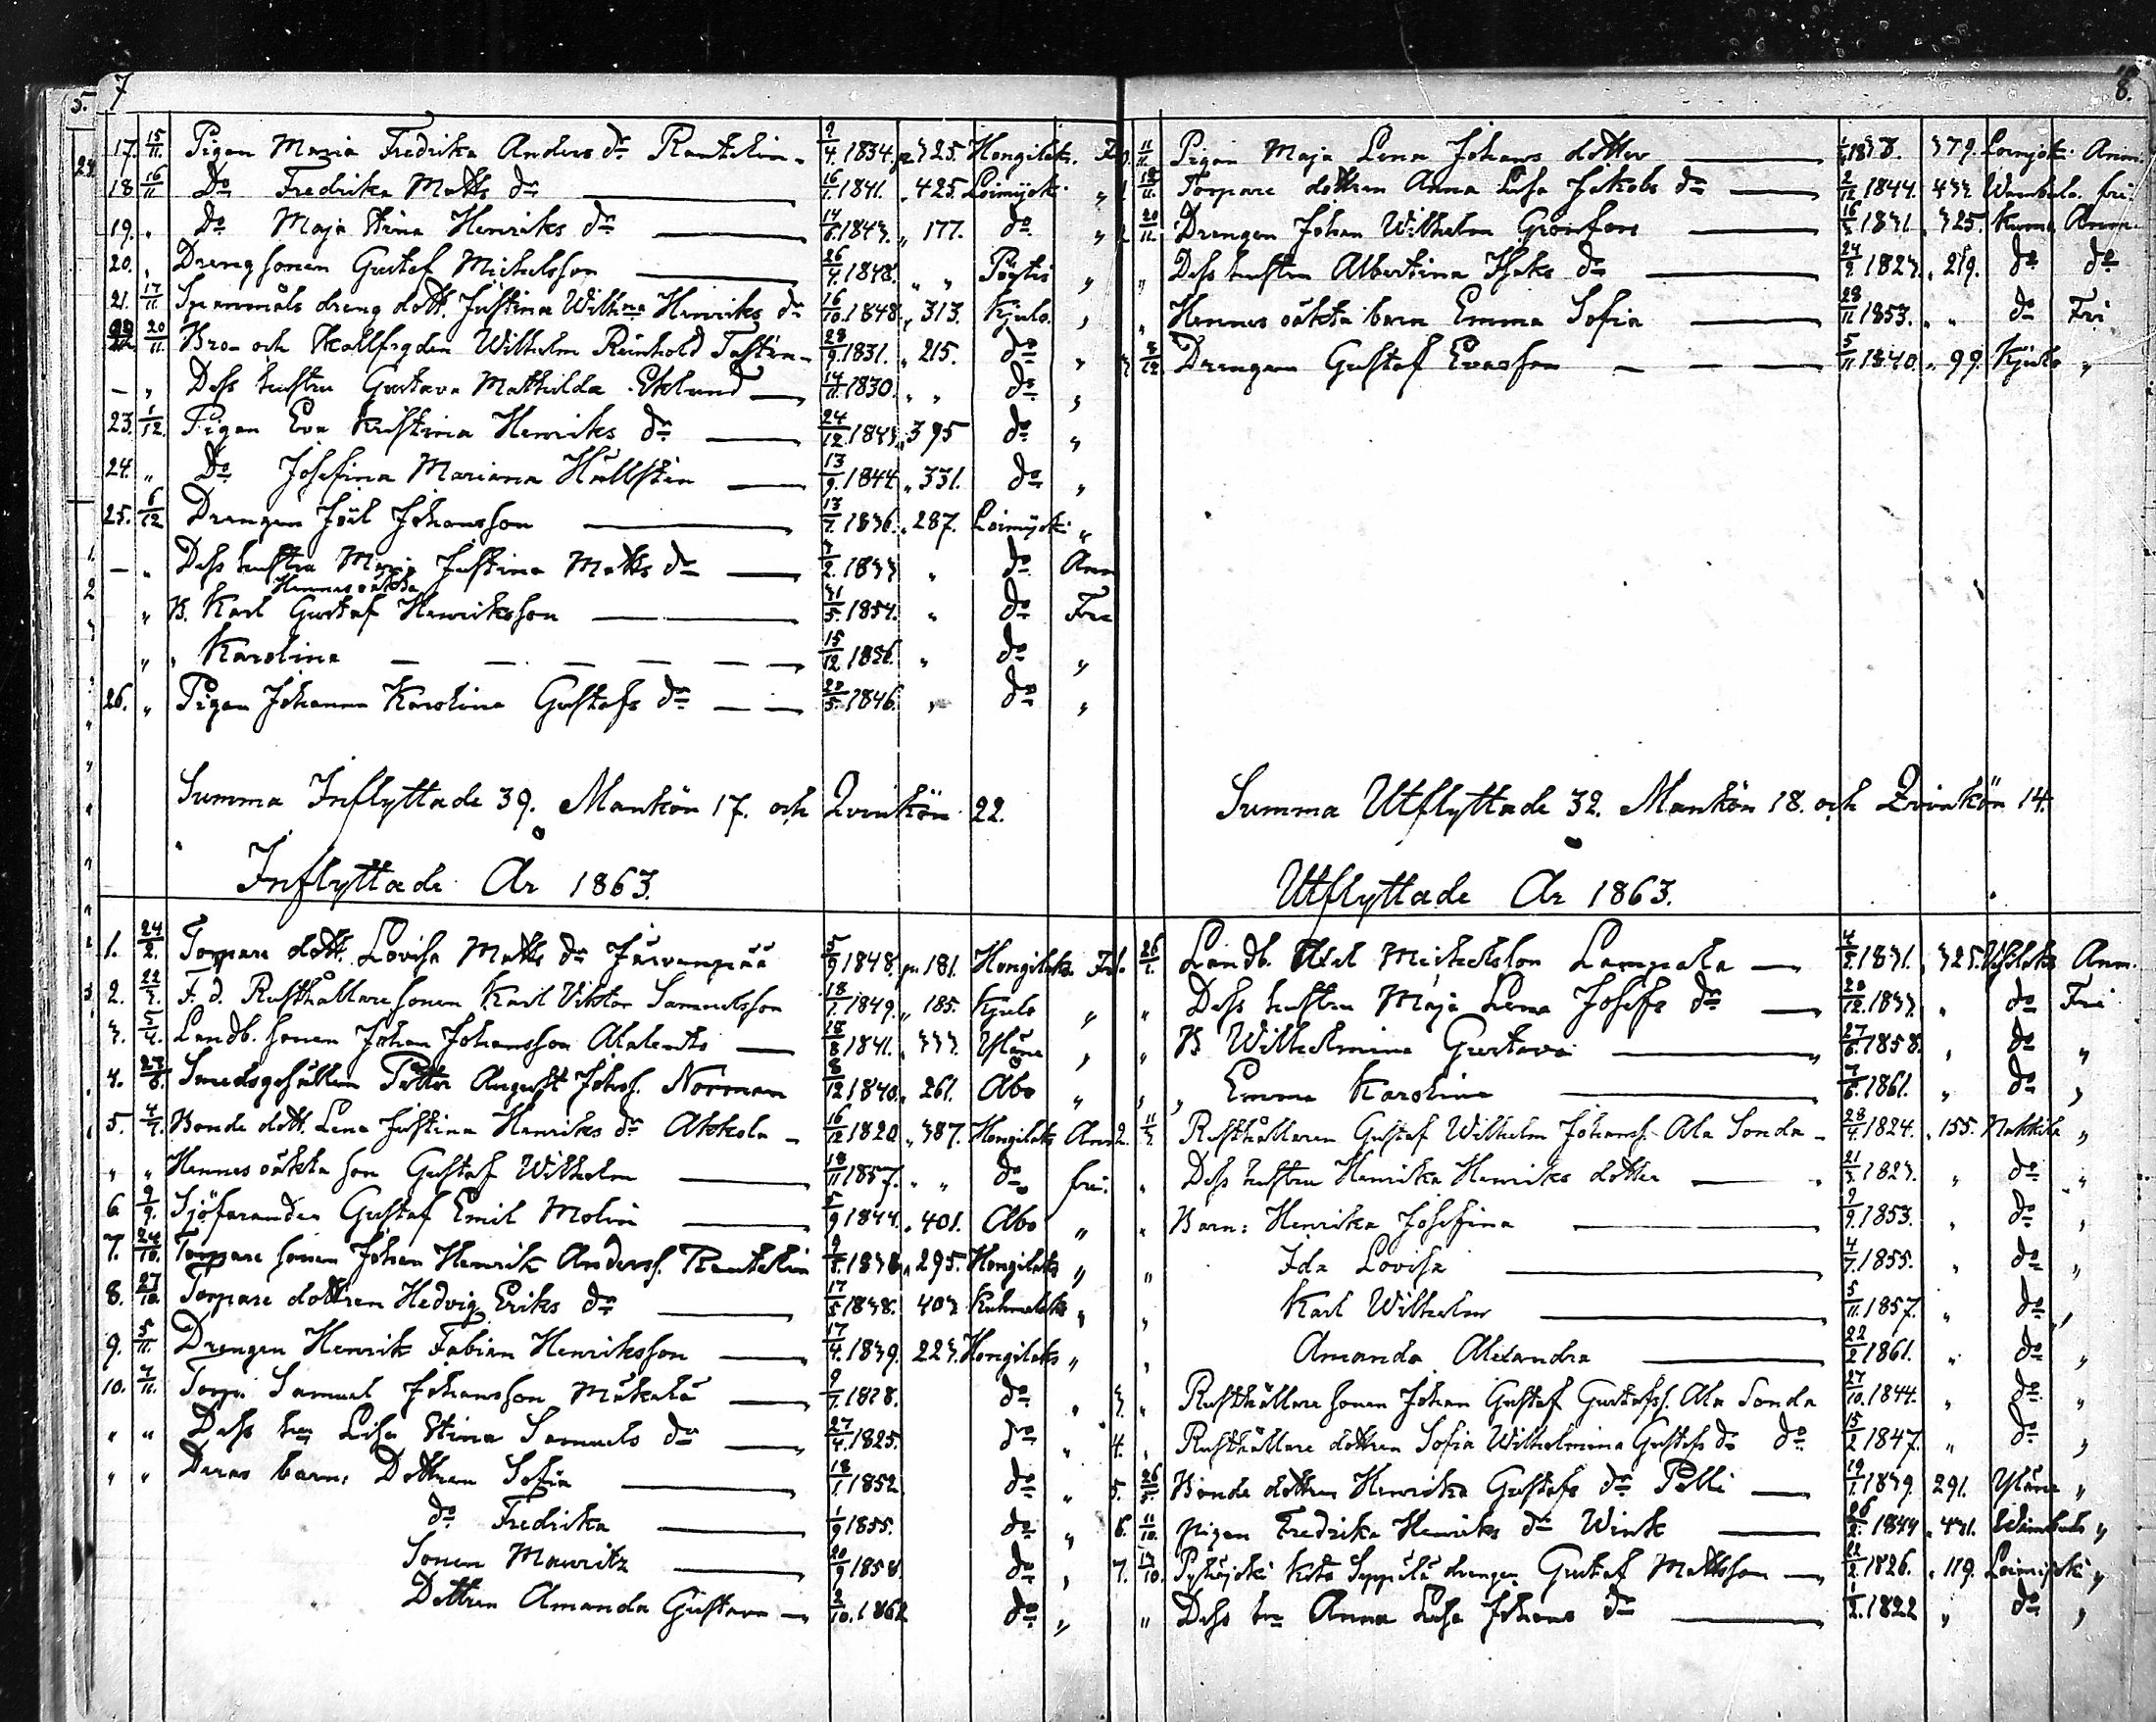 7
17. 15/11. Pigan Maria Fredrika Anders dr Rantelin 2/4. 1834. p 325. Hongilaks.
18 16/11 Do Fredrika Matts dr 16/1. 1841. " 425. Loimijoki "
19. " Do Maja Stina Henriks dr 1843. " 177. do "
20. " Drengsonen Gustaf Michelsson 26/4. 1848. " " Pöytis "
21. 17/11 Spannmåls dreng dott. Justina Wilhna Henriks dr 16/10. 1848. " 313. Kjulo. "
22 20/11. Bro- och Wilhelm Reinhold 28/9. 1831. " 215. do "
— " Dess hustru Gustava Mathilda Eklund 14/11. 1830. " " do "
23. 1/12. Pigan Eva Kristina Henriks dr 24/12. 1843. " 395 do "
24. " Do Josefina Mariana Hällstin 13/9. 1844. " 331. do "
25. 6/12 Drengen Joil Johansson 13/7. 1836. " 287. Loimijoki "
— " Dess hustru Maja Justina Matts dr 1833 " do Anm
Hennes oäkta
" B. Karl Gustaf Henriksson 31/5. 1854. " do Fri
" " Karolina 15/12 1856. " do "
26. " Pigan Johanna Karolina Gustafs dr 22/5. 1846. " do "
Summa Inflyttade 39. Mankön 17. och Qvinkön 22.
Inflyttade År 1863.
1. 24/2. Torpare dott. Lovisa Matts dr Järvenpää 5/9 1848. p. 181. Hongilaks. Fri.
2. 22/3. F. d. Rusthållare sonen Karl Viktor Samuelsson 18/7. 1849. " 185. Kjulo "
3. 5/4. Landb. sonen Johan Johansson Alalents 18/8 1841. " 333. Yläne "
4. 23/6. Smedsgesällen Petter August Johss. Norrman 8/12 1840. " 261. Åbo "
5. 4/7. Bonde dott. Lena Justina Henriks dr Akkola 16/12 1820. " 387. Hongilaks Anm
" " Hennes oäkta son Gustaf Wilhelm 18/11 1857. " " do fri.
6 9/9. Sjöfaranden Gustaf Emil Molin 5/9 1844. " 401. Åbo "
7. 24/10. Torpare sonen Johan Henrik Anderss. Rantelin 1838. " 295. Hongilaks "
8. 27/10. Torpare dottren Hedvig Eriks dr 17/5 1838. 403 Kuhmalaks "
9. 5/11. Drengen Henrik Fabian Henriksson 17/4. 1839. 223. Hongilaks "
10. 7/11. Torp. Samuel Johansson Mäkelä 9/7. 1828. do "
" " Dess hu Lisa Stina Samuels dr 27/4. 1825. do "
" " Deras barn: Dottren Sofia 18/1. 1852. do "
do Fredrika 1/9 1855. do "
Sonen Mauritz 20/9 1858. do "
Dottren Amanda Gustava 2/10. 1862 do "
8.
11/11 Pigan Maja Lena Johans dotter 379. Loimjoki Anm.
18/11. Torpare dottren Anna Lisa Jakobs dr 1844. 433 Wambula. fri.
20/11. Drengen Johan Wilhelm Grönfors 16/ 1831. " 325. Kumo Anm.
" Dess hustru Albertina Isaks dr 24/9. 1823. " 219. do do
" Hennes oäkta barn Emma Sofia 28/11 1853. " " do Fri
3 3/12 Drengen Gustaf Evasson 5/11 1840. " 99. Kjulo "
Summa Utflyttade 32. Mankön 18. och Qvinkön 14.
Utflyttade År 1863.
26/1. Landb. Axel Michelsson Lampala 4/5. 1831. " 325. Anm.
" Dess hustru Maja Lena Josefs dr 20/12. 1833. " do Fri
" B Wilhelmina Gustava 27/6. 1858. " do "
" " Emma Karolina 7/6. 1861. " do "
2. 11/3. Rusthållaren Gustaf Wilhelm Johanss. Ala Sonda 28/4. 1824. " 155. Nakkila "
" Dess hustru Henrika Henriks dotter 21/3. 1823. " do "
" Barn: Henrika Josefina 9/9. 1853. " do "
" Ida Lovisa 4/7. 1855. " do "
" Karl Wilhelm 5/11. 1857. " do "
" Amanda Alexandra 22/2 1861. " do "
3. " Rusthållare sonen Johan Gustaf Gustafss. Ala Sonda 27/10. 1844. " do "
4. " Rusthållare dottren Sofia Wilhelmina Gustafs dr do 15/2 1847. " do "
5. 26/5. Bonde dottren Henrika Gustafs dr Pelli 19/7. 1839. 291. Yläne "
6. 11/10. Pigan Fredrika Henriks dr Wink 26/2. 1844 " 431. Wambula "
7. 17/10. Pyhäjoki kita Seppälä drengen Gustaf Mattsson 22/2. 1826. " 119. Loimijoki "
" Dess hu Anna Lisa Johans dr 1822 " do "